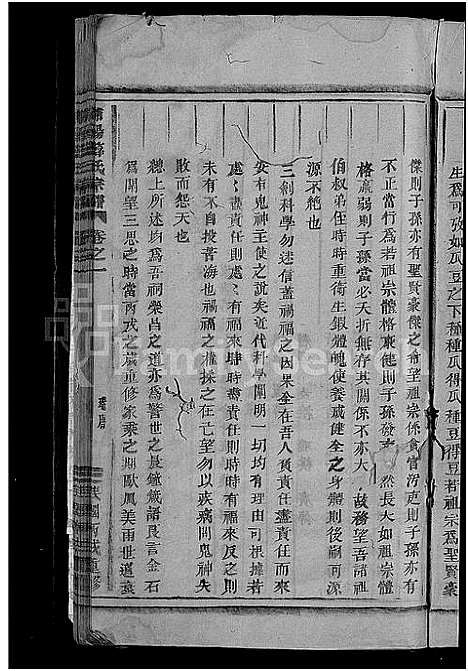 生爲可敬如瓜豆之下種種瓜得瓜種豆得豆若祖宗爲聖賢豪
傑則子孫亦有聖賢豪傑之希望祖宗係貪官汚吏則子孫亦有
不正當行爲若祖宗體格來健則子孫發 亦 然長大如祖宗體
格羸弱則子孫當必夭折無存其關係不亦大 故務望吾諸祖
伯叔弟侄時時重衛生鍛體魄使養成健全之身體則後嗣可源
源不絶也
三創科學勿迷信蓋禍福之因果全在吾人負責任盡責任而來
安有鬼神主使之說矣近代科學闡明一切均有可根據若
處處有責任則處處有福來時時盡責任則時時有福來反之則
未有不自投苦海也禍福之權操之在亡望勿以疾病問鬼神失
敗而怨天也
總上所述均爲吾祠榮昌之道亦爲警世之晨鐘箴語良言金石
爲開望三思之時當丙戌之歲重修家乘之期歐風美雨世道衰
陽 氏宗譜 卷之一
重修